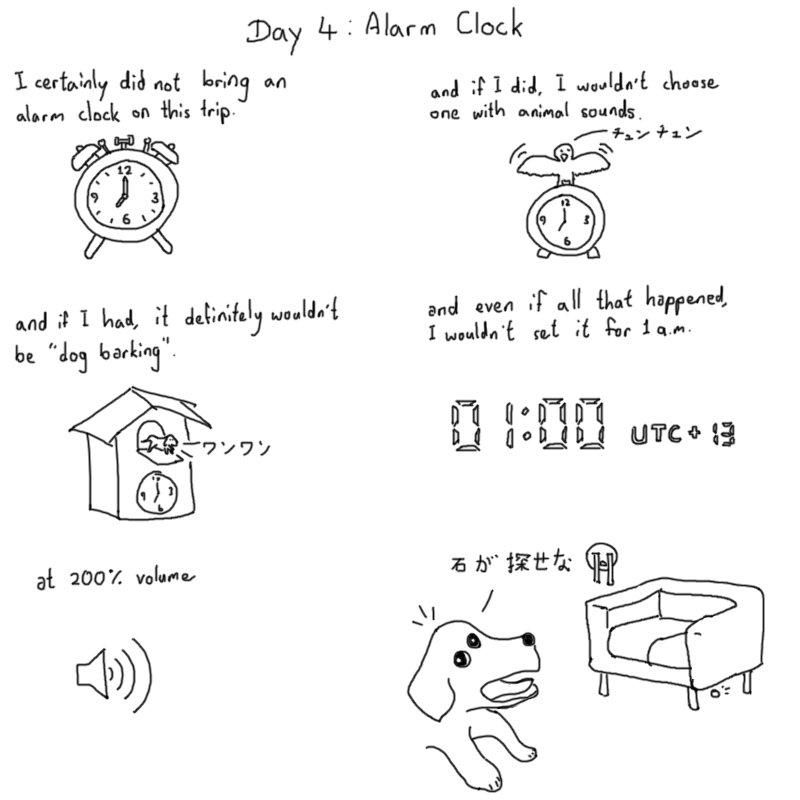 Day 4: Alarm Clock
I certainly did not bring an
alarm clock on this trip.
12
9 3
6
and if I did, I wouldn't choose
one with animal sounds.
チュン チュン
12
9 3
6
and if I had, it definitely wouldn't
be "dog barking".
ワンワン
12
9 3
6
and even if all that happened,
I wouldn't set it for 1 a.m.
01:00 UTC+13
at 200% volume
石が探せな